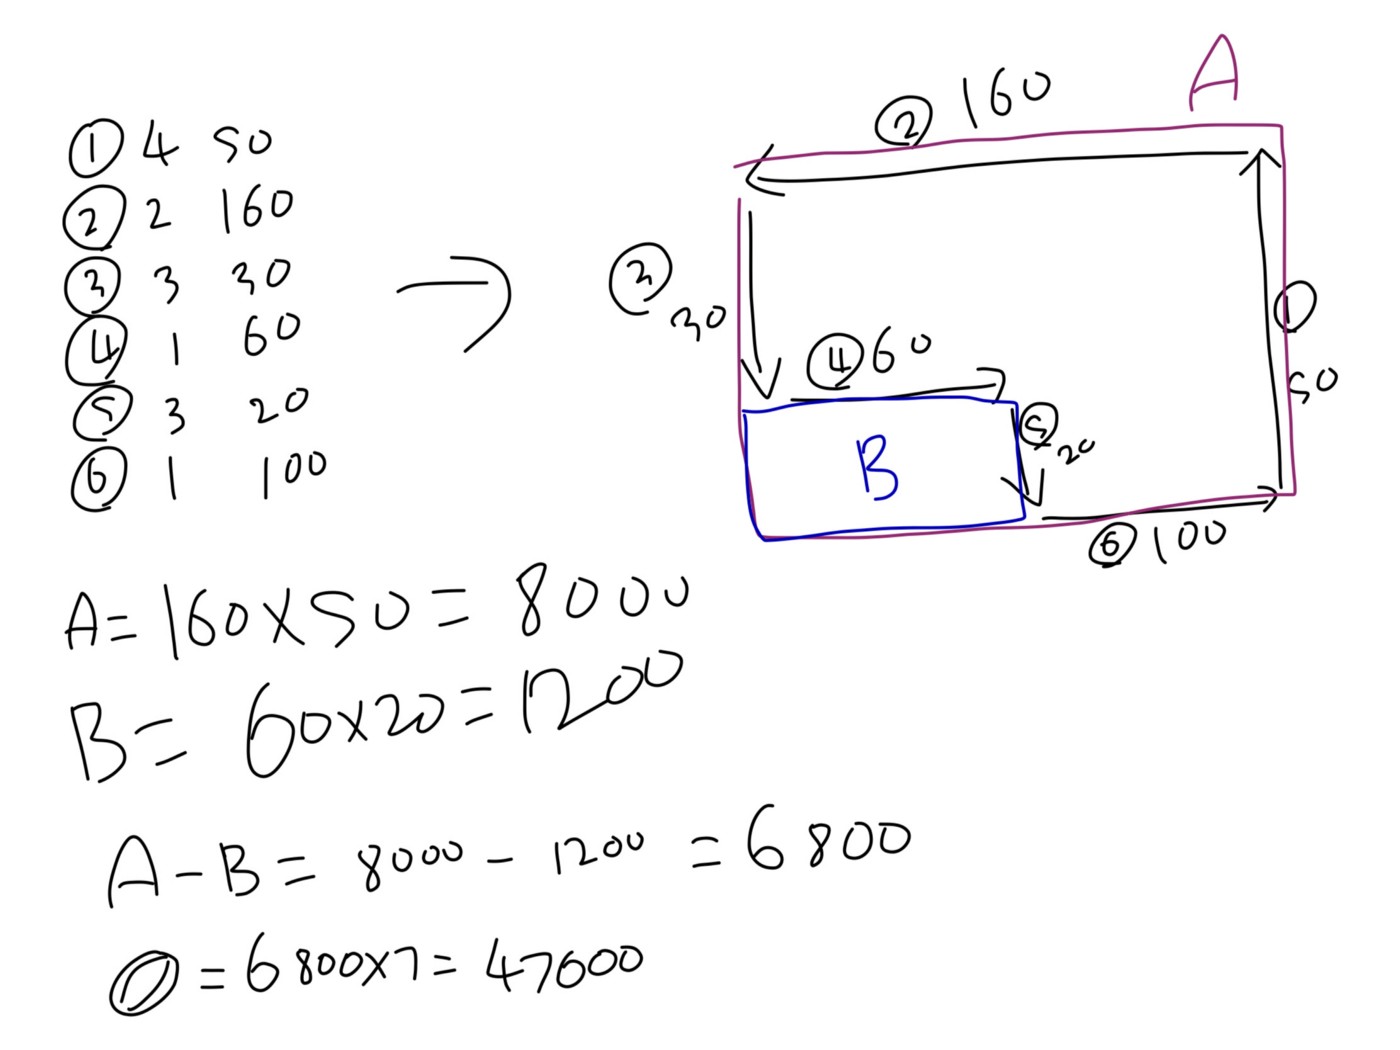 ① 4 50
② 2 160
③ 3 30
④ 1 60
⑤ 3 20
⑥ 1 100
A
② 160
③ 30
④ 60
① 50
B
⑤ 20
⑥ 100
A = 160 X 50 = 8000
B = 60 x 20 = 1200
A - B = 8000 - 1200 = 6800
= 6800 x 7 = 47600